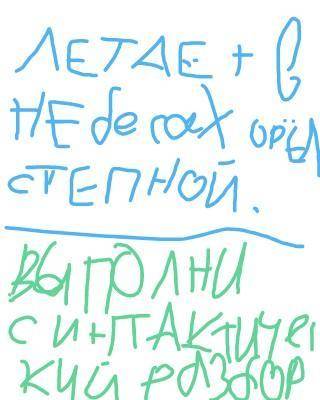 ЛЕТАЕТ в
НЕбесах орёл
СТЕПНОЙ.
ВЫПОЛНИ
СИНТАКТИЧЕС
КИЙ РАЗБОР